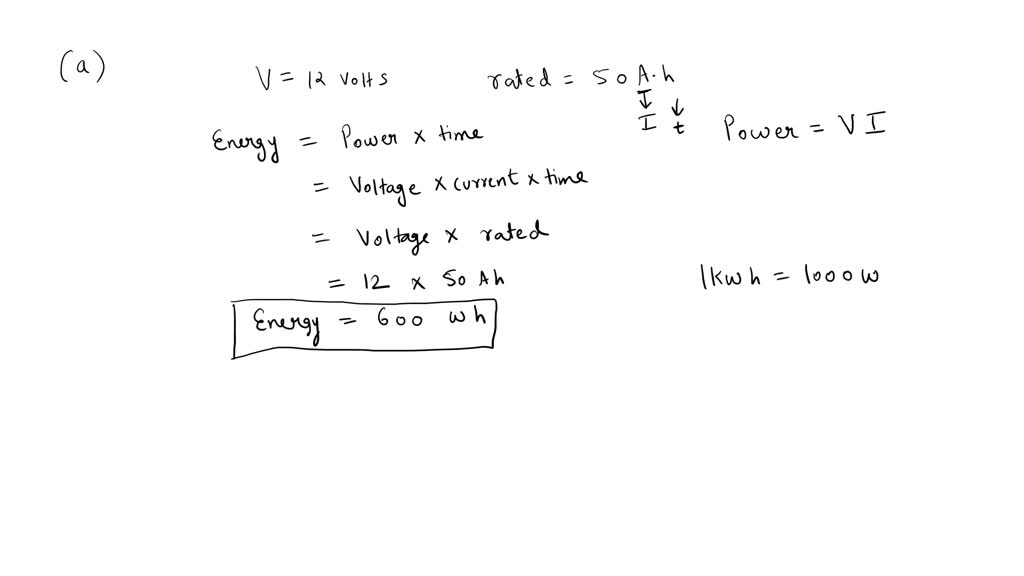 (a)
V = 12 volts rated = 50 A.h
↓ ↓
I t
Power = VI
Energy = Power x time
= Voltage x current x time
= Voltage x rated
= 12 x 50 Ah
1kwh = 1000w
Energy = 600 wh